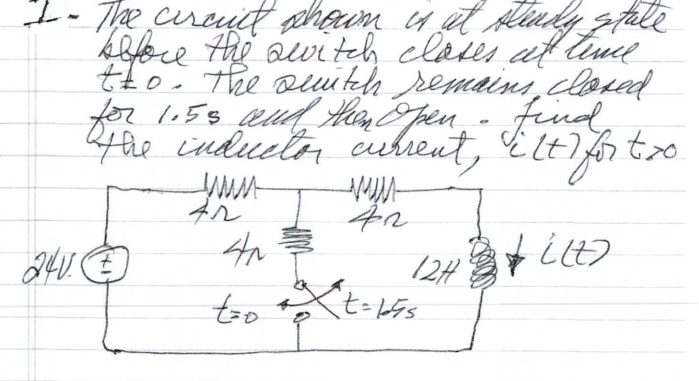 1- The circuit shown is at steady state
before the switch closes at time
t=0. The switch remains closed
for 1.5s and then open. Find
the inductor current, i(t) for t>0
4Ω
4Ω
24V.
+
-
4Ω
12H
i(t)
t=0
t=1.5s